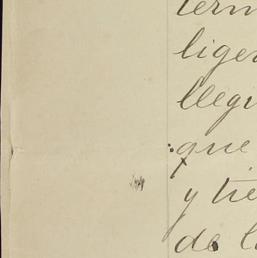 term
liger
llegu
que
y tie
de l